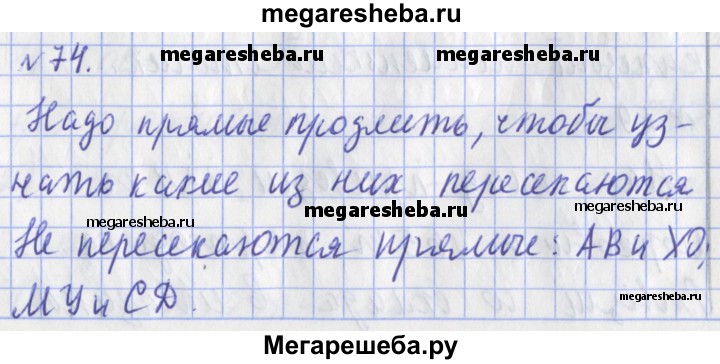 megaresheba.ru
№74. megaresheba.ru megaresheba.ru
Надо прямые продлить, чтобы уз-
нать какие из них пересекаются
megaresheba.ru megaresheba.ru
Не пересекаются прямые: АВ и ХО,
МУ и СД.
megaresheba.ru
Мегарешеба.ру